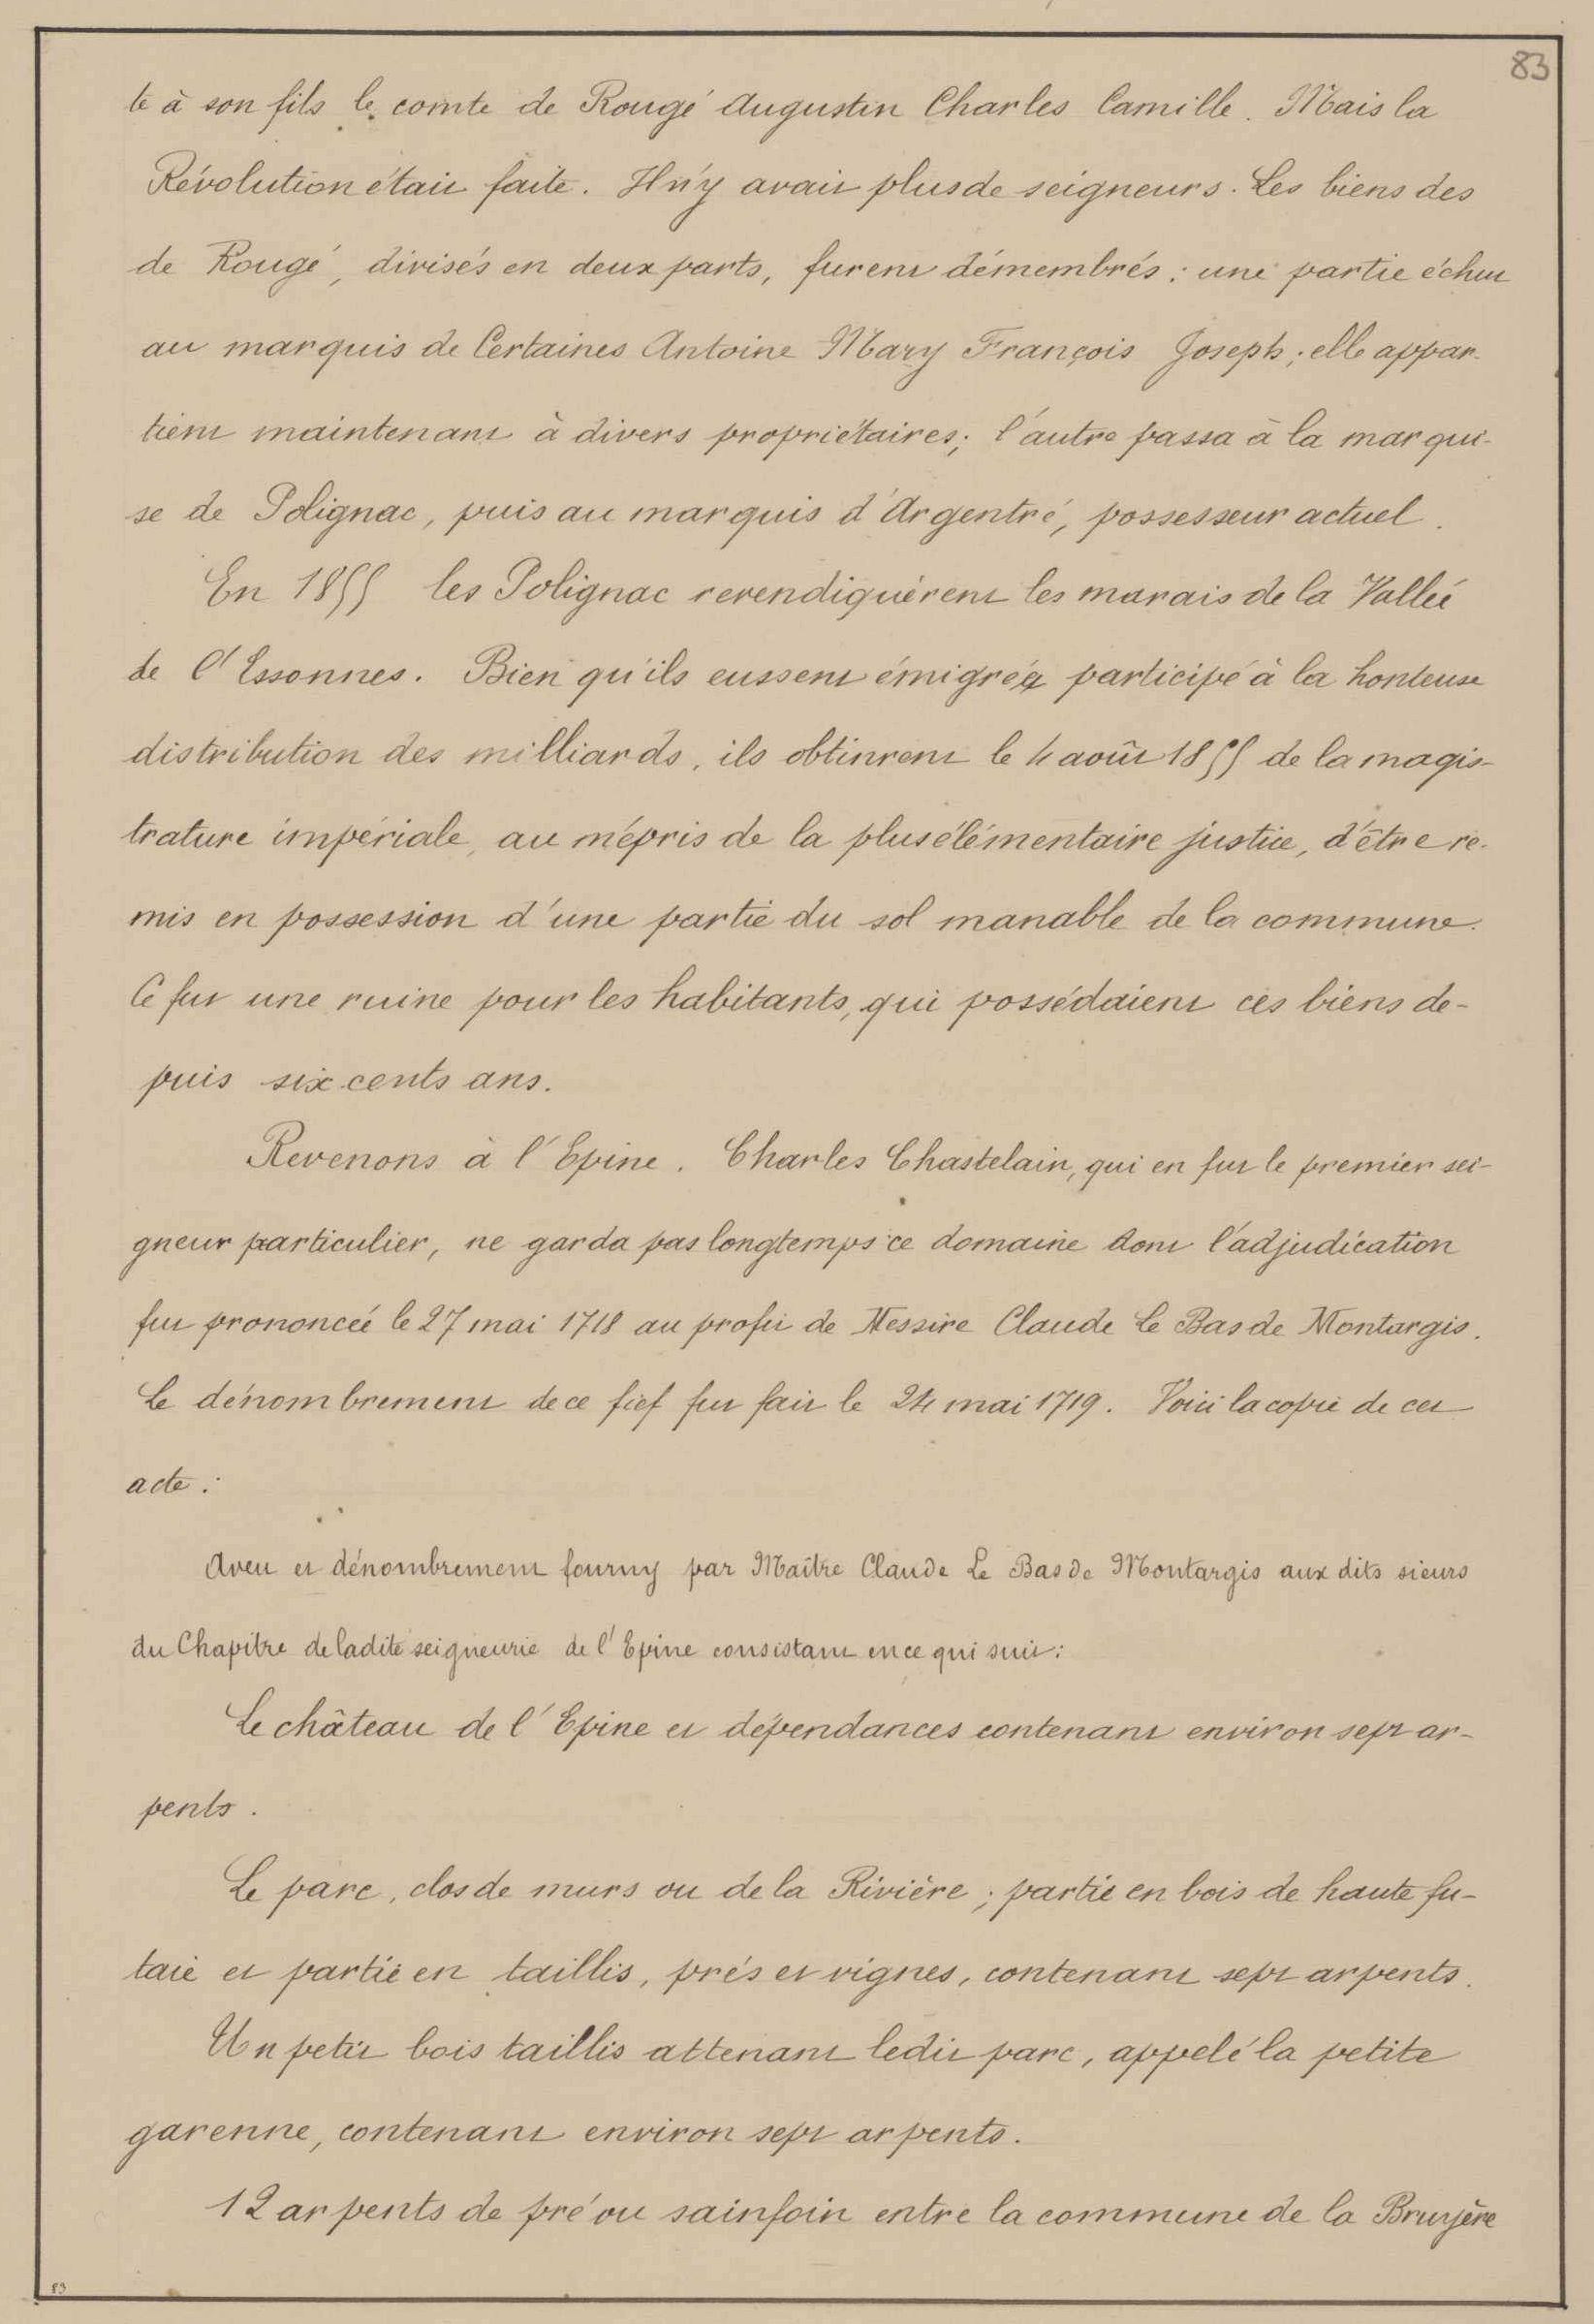 83
te à son fils le comte de Rougé Augustin Charles Camille. Mais la
Révolution était faite. Il n'y avait plus de seigneurs. Les biens des
de Rougé, divisés en deux parts, furent démembrés : une partie échut
au marquis de Certaines Antoine Mary François Joseph ; elle appar-
tient maintenant à divers propriétaires ; l'autre passa à la marqui-
se de Polignac, puis au marquis d'Argentré, possesseur actuel.
En 1855 les Polignac revendiquèrent les marais de la Vallée
de l'Essonnes. Bien qu'ils eussent émigré & participé à la honteuse
distribution des milliards, ils obtinrent le 4 août 1855 de la magis-
trature impériale, au mépris de la plus élémentaire justice, d'être re-
mis en possession d'une partie du sol manable de la commune.
Ce fut une ruine pour les habitants, qui possédaient ces biens de-
puis six cents ans.
Revenons à l'Epine. Charles Chastelain, qui en fut le premier sei-
gneur particulier, ne garda pas longtemps ce domaine dont l'adjudication
fut prononcée le 27 mai 1718 au profit de Messire Claude Le Bas de Montargis.
Le dénombrement de ce fief fut fait le 24 mai 1719. Voici la copie de cet
acte :
Aveu et dénombrement fourny par Maître Claude Le Bas de Montargis aux dits sieurs
du Chapitre de ladite seigneurie de l'Epine consistant en ce qui suit :
Le château de l'Epine et dépendances contenant environ sept ar-
pents.
Le parc, clos de murs ou de la Rivière ; partie en bois de haute fu-
taie et partie en taillis, prés et vignes, contenant sept arpents.
Un petit bois taillis attenant ledit parc, appelé la petite
garenne, contenant environ sept arpents.
12 arpents de pré ou sainfoin entre la commune de la Bruyère
83